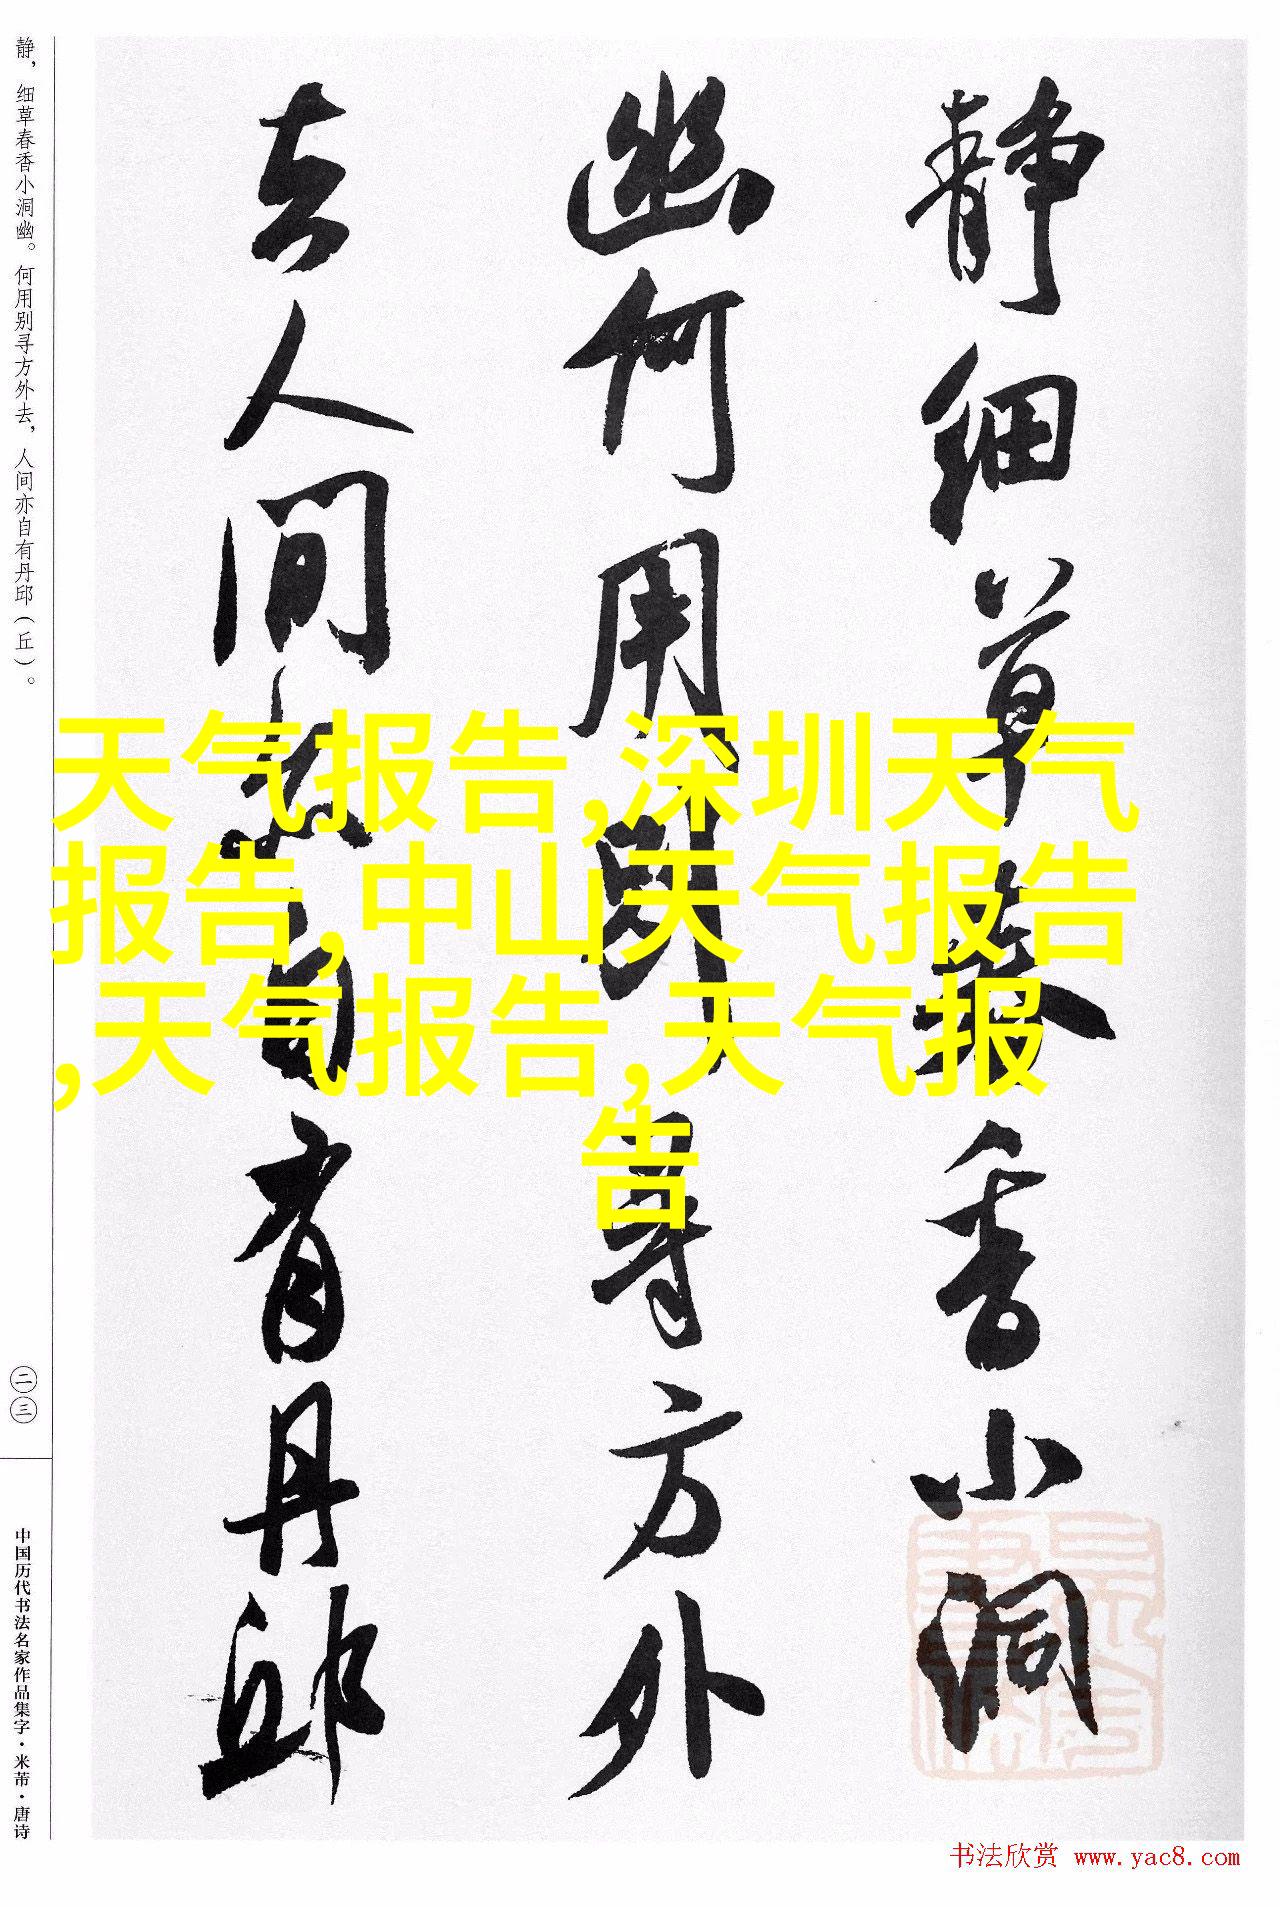 静细草春香小洞
幽何用别寻方外
去人间亦自有丹邱
静，细草春香小洞幽。何用别寻方外去，人间亦自有丹邱（丘）。
二三
中国历代书法名家作品集字·米芾·唐诗
天气报告,深圳天气
报告,中山天气报告
,天气报告,天气报
告
书法欣赏 www.yac8.com